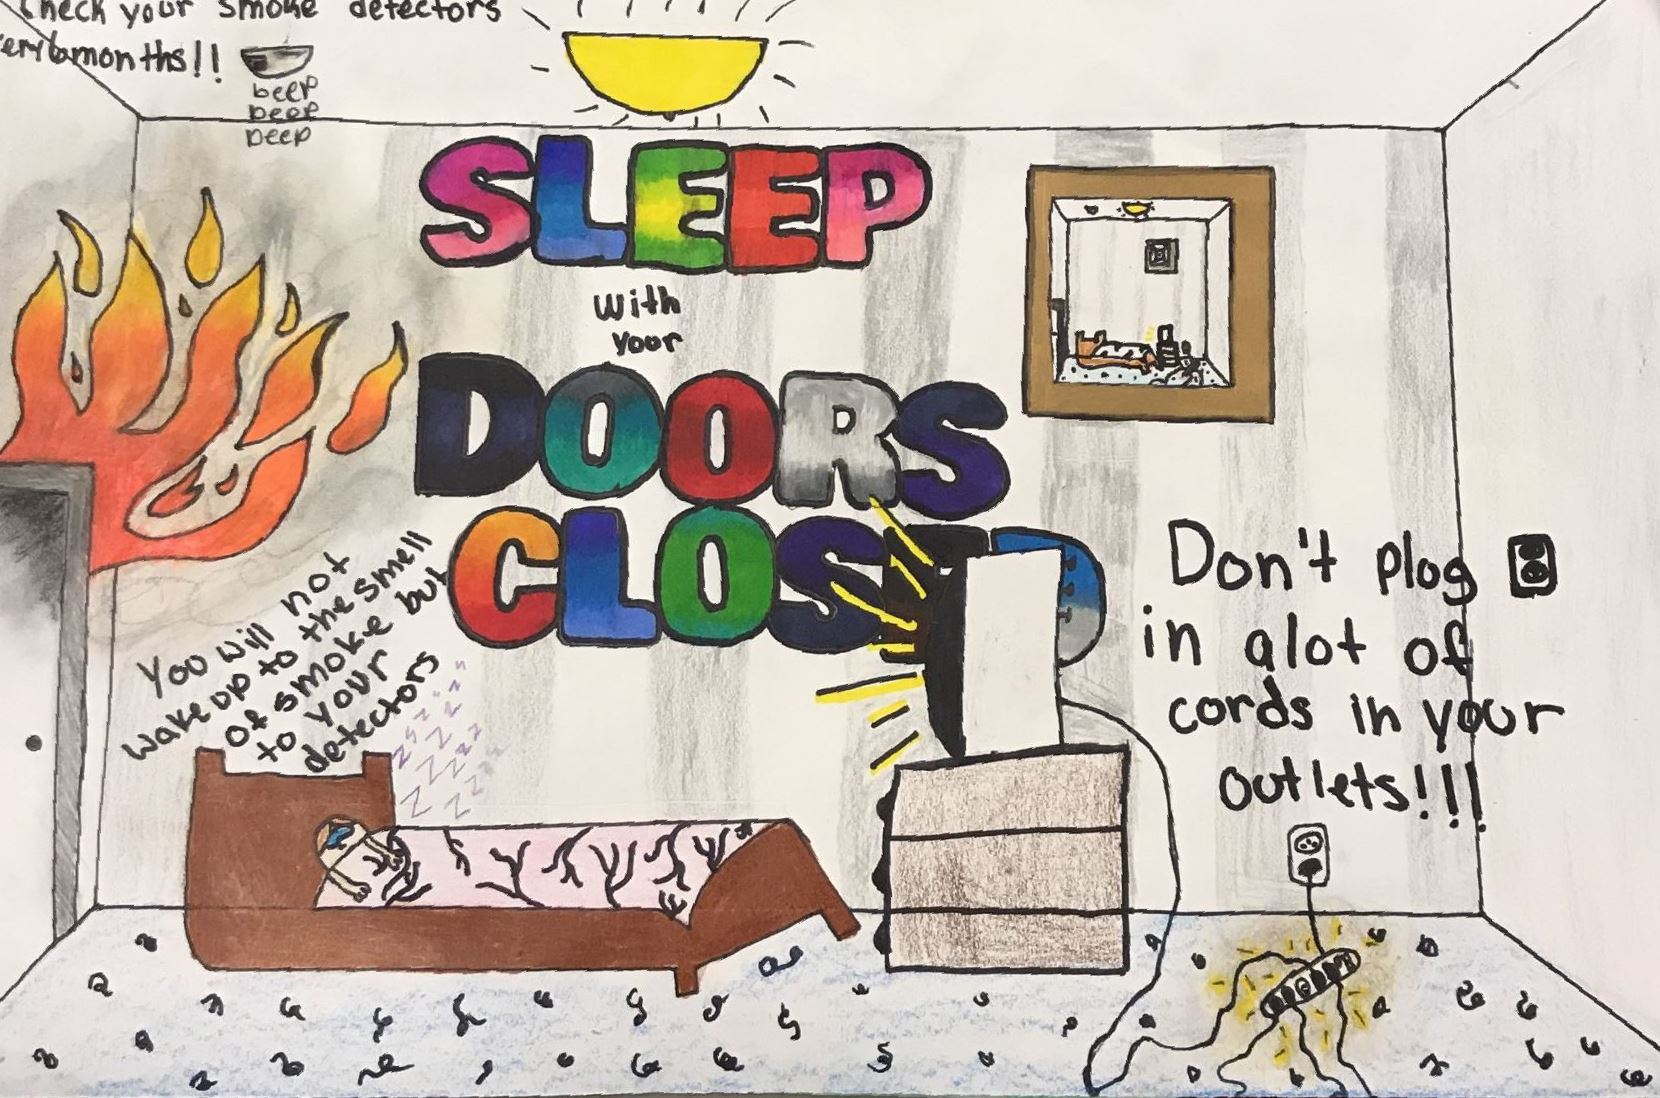 Check your smoke detectors
ery 6 months!!
beep
beep
beep
SLEEP
with
your
DOORS
CLOSED
You will not
wake up to the smell
of smoke but
to your
detectors
Don't plug
in alot of
cords in your
outlets!!!